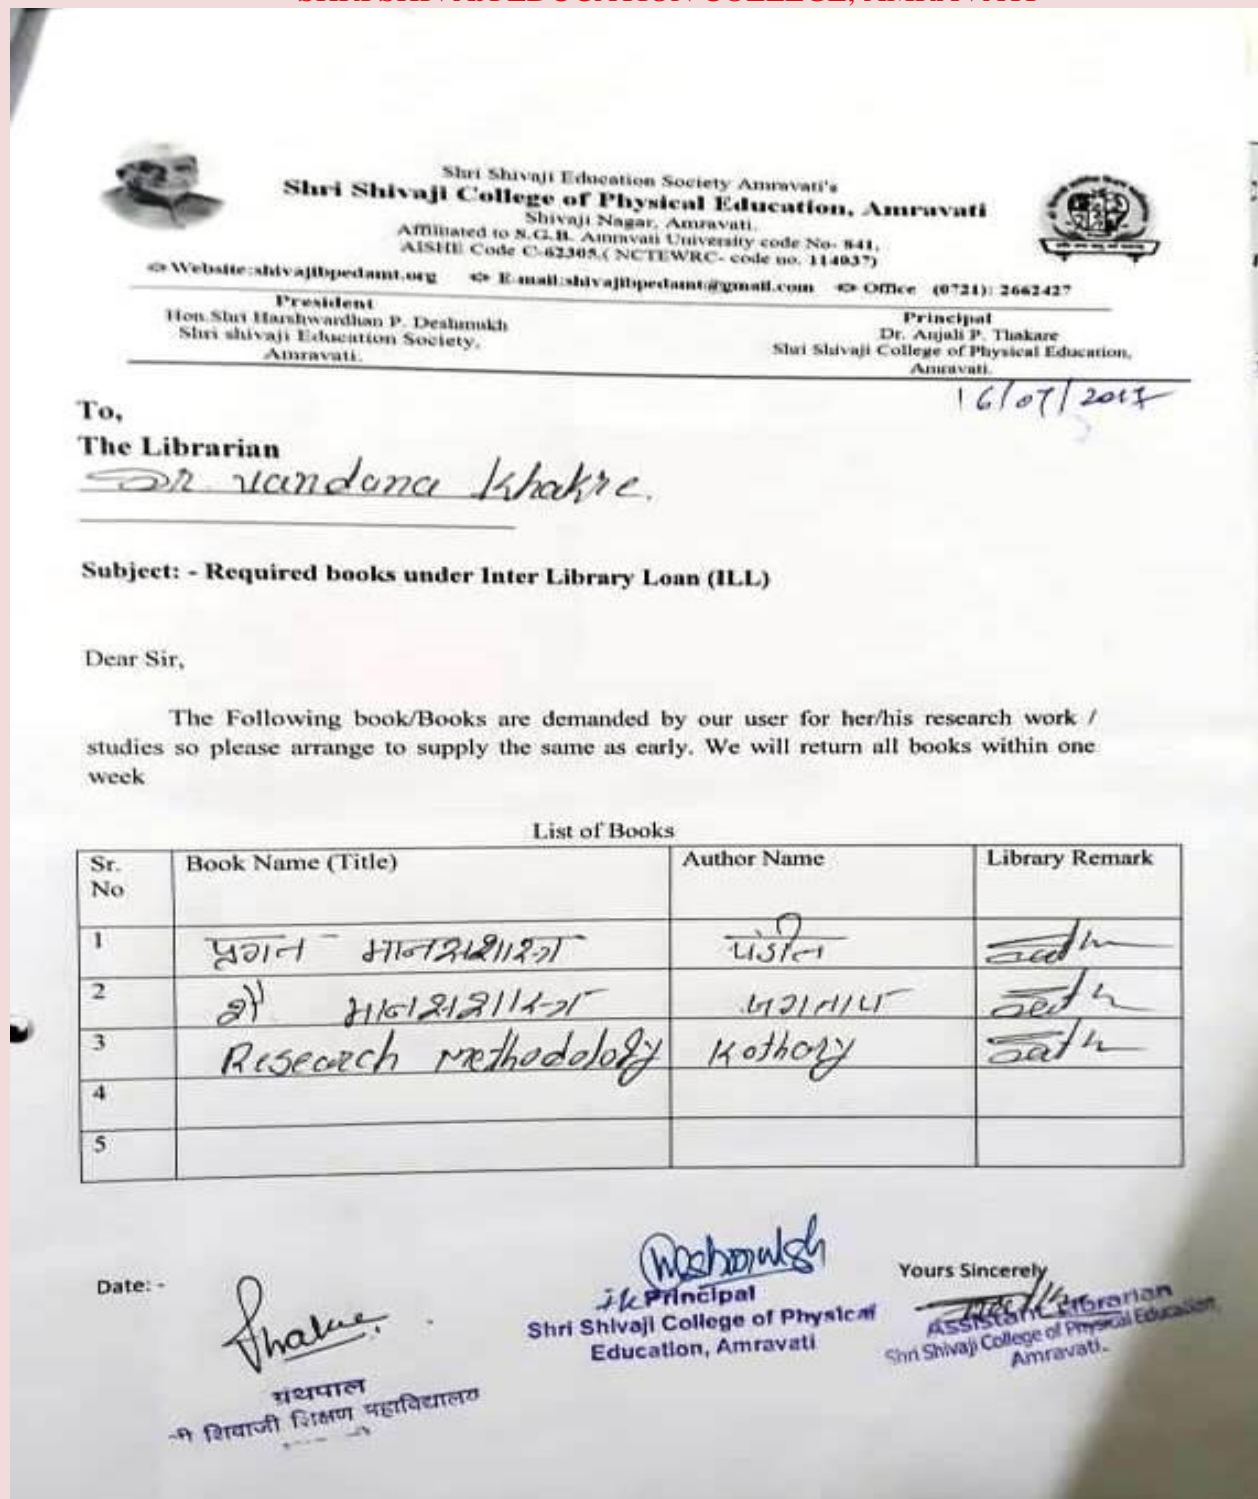 SHRI SHIVAJI EDUCATION COLLEGE, AMRAVATI
Shri Shivaji Education Society Amravati's
Shri Shivaji College of Physical Education, Amravati
Shivaji Nagar, Amravati.
Affiliated to S.G.B. Amravati University code No- 841,
AISHE Code C-62305,( NCTEWRC- code no. 114037)
Website:shivajibpedamt.org E-mail:shivajibpedamt@gmail.com Office (0721): 2662427
President
Hon.Shri Harshwardhan P. Deshmukh
Shri shivaji Education Society,
Amravati.
Principal
Dr. Anjali P. Thakare
Shri Shivaji College of Physical Education,
Amravati.
16/07/2017
To,
The Librarian
Dr. Vandana Khakre.
Subject: - Required books under Inter Library Loan (ILL)
Dear Sir,
The Following book/Books are demanded by our user for her/his research work /
studies so please arrange to supply the same as early. We will return all books within one
week
List of Books
Sr. No Book Name (Title) Author Name Library Remark
1 प्रगत मानसशास्त्र पंडीत
2 मानसशास्त्र जगताप
3 Research Methodology Kothary
4
5
Date: -
Thakre.
ग्रंथपाल
श्री शिवाजी शिक्षण महाविद्यालय
Principal
Shri Shivaji College of Physical
Education, Amravati
Yours Sincerely
Assistant Librarian
Shri Shivaji College of Physical Education,
Amravati.